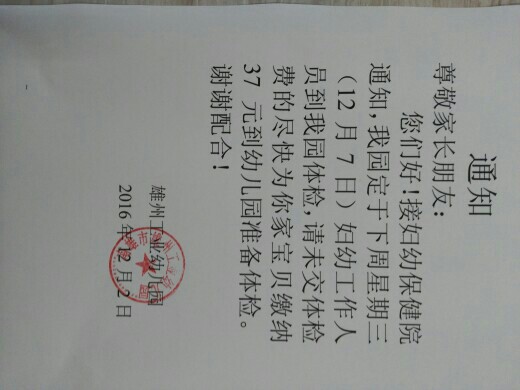 通知
尊敬家长朋友：
您们好！接妇幼保健院
通知，我园定于下周星期三
（12 月 7 日）妇幼工作人
员到我园体检，请未交体检
费的尽快为你家宝贝缴纳
37 元到幼儿园准备体检。
谢谢配合！
雄州工业幼儿园
2016 年 12 月 2 日